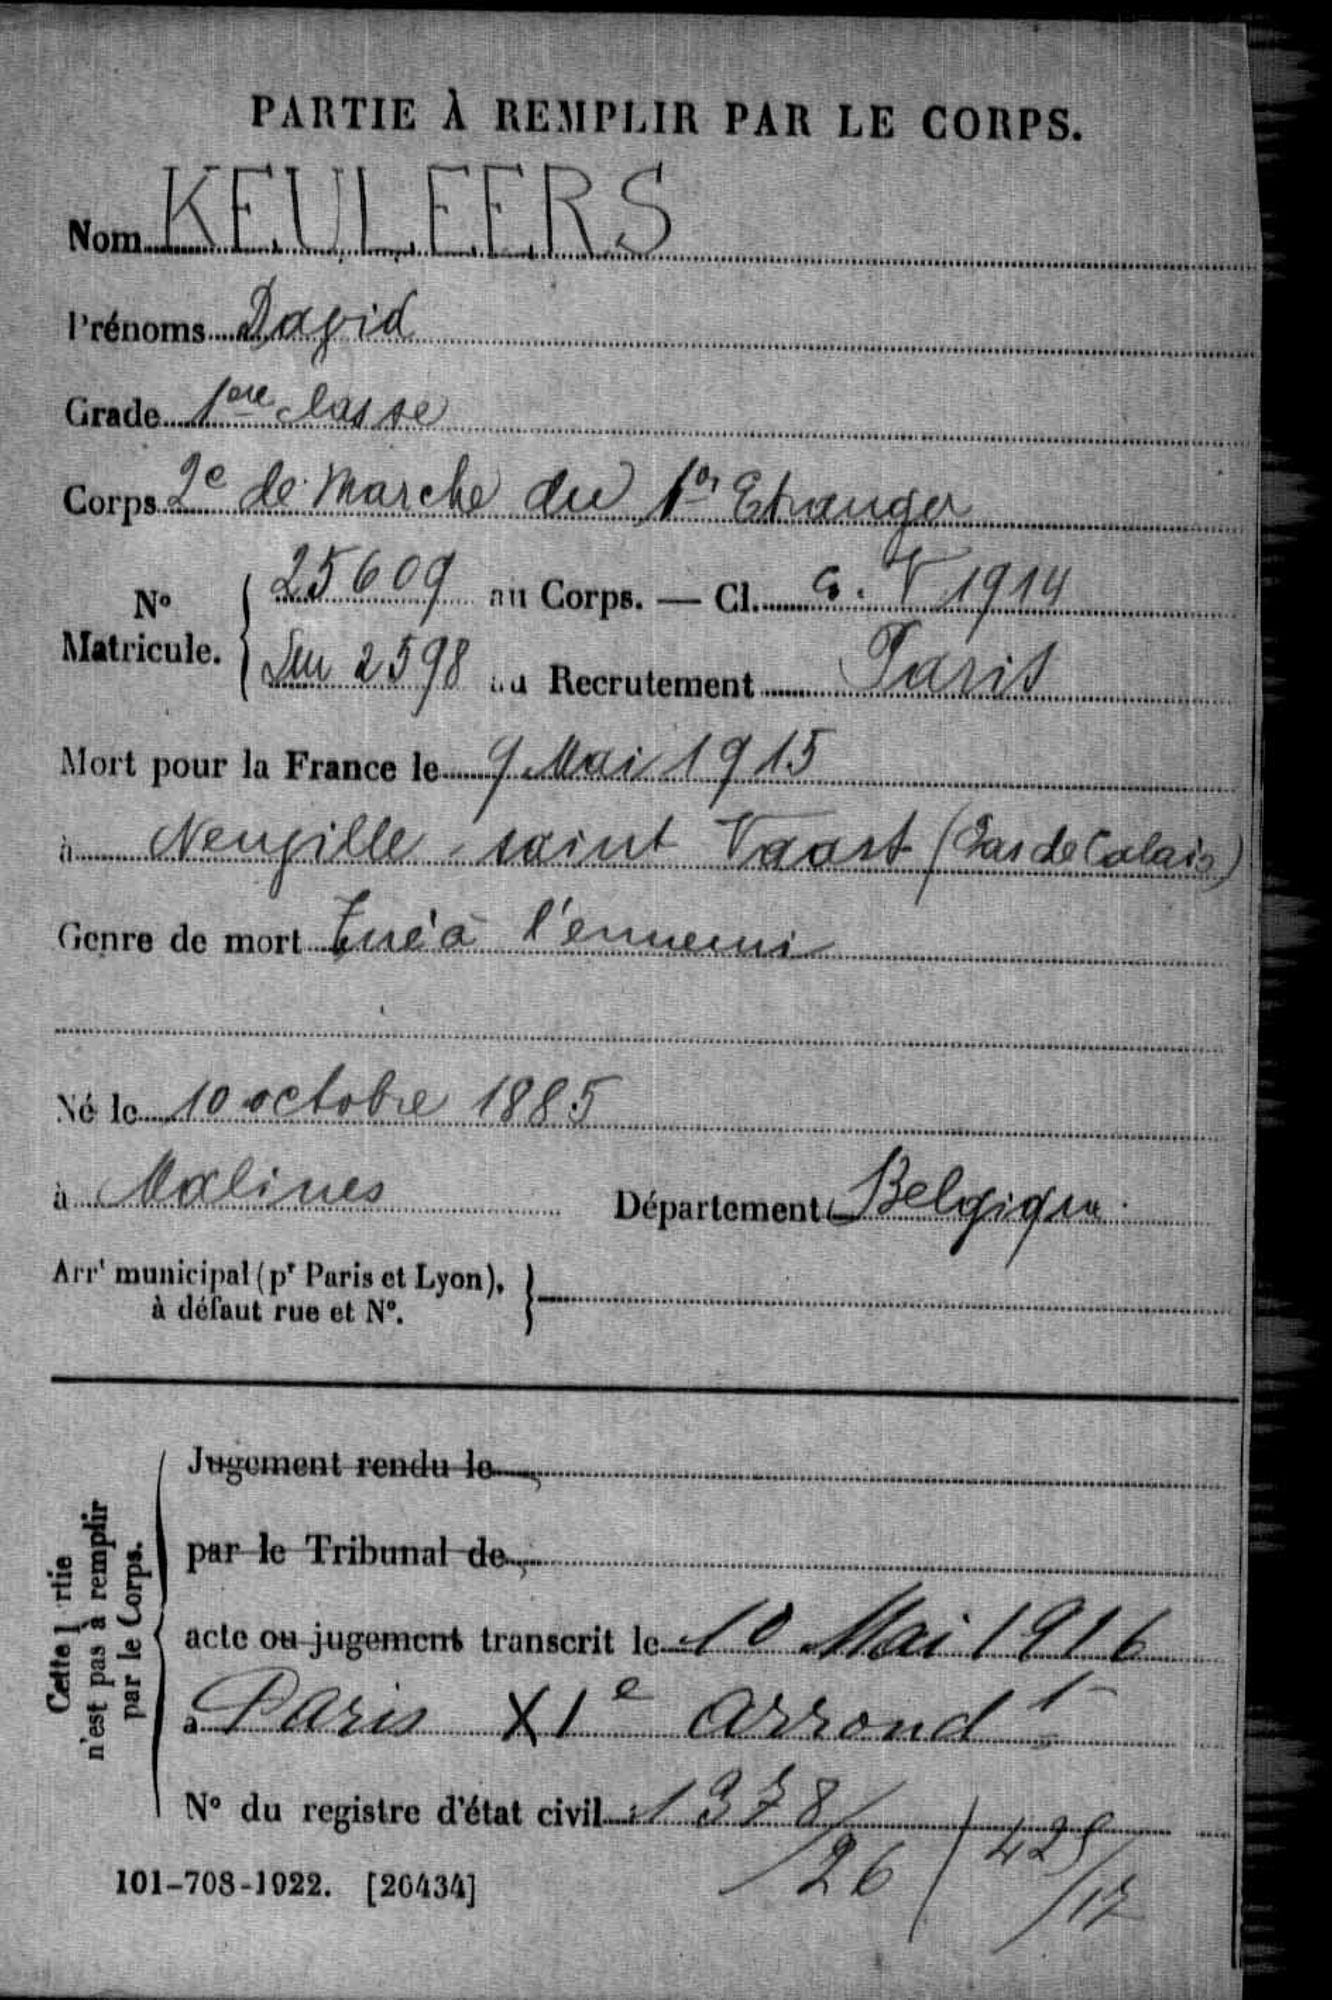 PARTIE À REMPLIR PAR LE CORPS.
Nom KEULEERS
Prénoms David
Grade 1ère classe
Corps 2e de Marche du 1er Etranger
No Matricule. { 25609 au Corps. — Cl. E. V 1914
Seu 2598 au Recrutement Paris
Mort pour la France le 9 Mai 1915
à Neuville-saint Vaast (Pas de Calais)
Genre de mort Tué à l'ennemi
Né le 10 octobre 1885
à Malines Département Belgique
Arrt municipal (pr Paris et Lyon), à défaut rue et No. }
Cette partie n'est pas à remplir par le Corps.
Jugement rendu le
par le Tribunal de
acte ou jugement transcrit le 10 Mai 1916
à Paris XIe arrondt
No du registre d'état civil 1378/26
425/17
101-708-1922. [26434]